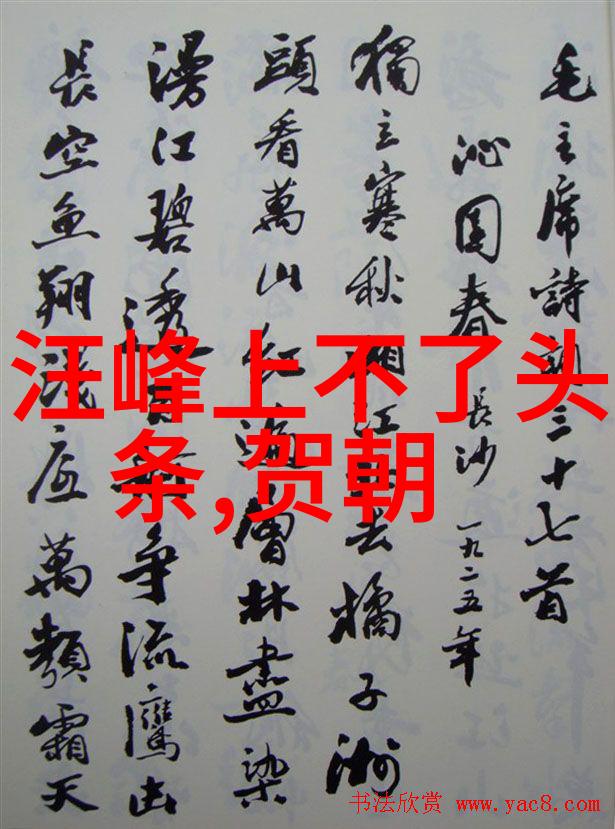 毛主席詩詞三十七首
沁園春 長沙 一九二五年
獨立寒秋湘江北去橘子洲
頭看萬山红遍層林盡染
漫江碧透百舸争流鷹击
長空魚翔浅底萬類霜天
汪峰上不了头
条,贺朝
书法欣赏 www.yac8.com